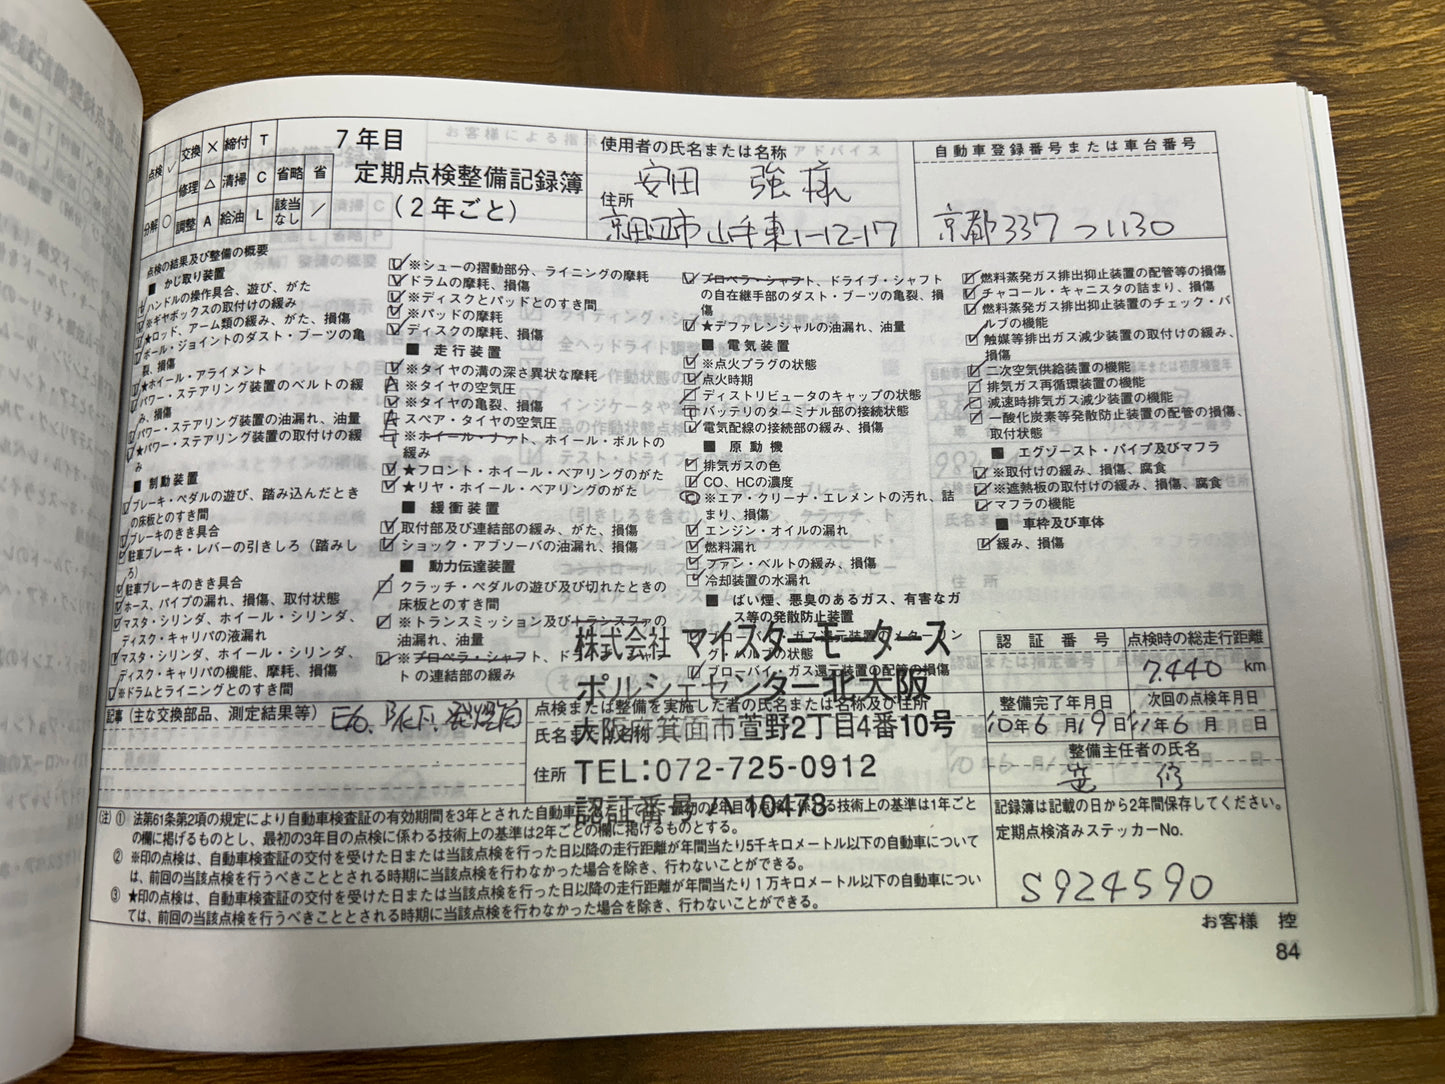 7年目
定期点検整備記録簿
(2年ごと)
点検 レ 交換 × 締付 T
修理 △ 清掃 C 省略 省
分解 ○ 調整 A 給油 L 該当なし /
使用者の氏名または名称
安田 強 様
住所
京田辺市山手東1-12-17
自動車登録番号または車台番号
京都337つ1130
点検の結果及び整備の概要
■ かじ取り装置
ハンドルの操作具合、遊び、がた
※ギヤボックスの取付けの緩み
★ロッド、アーム類の緩み、がた、損傷
ボール・ジョイントのダスト・ブーツの亀
裂、損傷
★ホイール・アライメント
パワー・ステアリング装置のベルトの緩
み、損傷
パワー・ステアリング装置の油漏れ、油量
★パワー・ステアリング装置の取付けの緩
み
■ 制動装置
ブレーキ・ペダルの遊び、踏み込んだとき
の床板とのすき間
ブレーキのきき具合
駐車ブレーキ・レバーの引きしろ(踏みし
ろ)
駐車ブレーキのきき具合
ホース、パイプの漏れ、損傷、取付状態
マスタ・シリンダ、ホイール・シリンダ、
ディスク・キャリパの液漏れ
マスタ・シリンダ、ホイール・シリンダ、
ディスク・キャリパの機能、摩耗、損傷
※ドラムとライニングとのすき間
※シューの摺動部分、ライニングの摩耗
ドラムの摩耗、損傷
※ディスクとパッドとのすき間
※パッドの摩耗
ディスクの摩耗、損傷
■ 走行装置
※タイヤの溝の深さ異状な摩耗
※タイヤの空気圧
※タイヤの亀裂、損傷
スペア・タイヤの空気圧
※ホイール・ナット、ホイール・ボルトの
緩み
★フロント・ホイール・ベアリングのがた
★リヤ・ホイール・ベアリングのがた
■ 緩衝装置
取付部及び連結部の緩み、がた、損傷
ショック・アブソーバの油漏れ、損傷
■ 動力伝達装置
クラッチ・ペダルの遊び及び切れたときの
床板とのすき間
※トランスミッション及びトランスファの
油漏れ、油量
※プロペラ・シャフト、ドライブ・シャフ
トの連結部の緩み
プロペラ・シャフト、ドライブ・シャフト
の自在継手部のダスト・ブーツの亀裂、損
傷
★デファレンシャルの油漏れ、油量
■ 電気装置
※点火プラグの状態
点火時期
ディストリビュータのキャップの状態
バッテリのターミナル部の接続状態
電気配線の接続部の緩み、損傷
■ 原動機
排気ガスの色
CO、HCの濃度
※エア・クリーナ・エレメントの汚れ、詰
まり、損傷
エンジン・オイルの漏れ
燃料漏れ
ファン・ベルトの緩み、損傷
冷却装置の水漏れ
■ ばい煙、悪臭のあるガス、有害なガ
ス等の発散防止装置
ブローバイ・ガス還元装置の配管の損傷
燃料蒸発ガス排出抑止装置の配管等の損傷
チャコール・キャニスタの詰まり、損傷
燃料蒸発ガス排出抑止装置のチェック・バ
ルブの機能
触媒等排出ガス減少装置の取付けの緩み、
損傷
二次空気供給装置の機能
排気ガス再循環装置の機能
減速時排気ガス減少装置の機能
一酸化炭素等発散防止装置の配管の損傷、
取付状態
■ エグゾースト・パイプ及びマフラ
※取付けの緩み、損傷、腐食
※遮熱板の取付けの緩み、損傷、腐食
マフラの機能
■ 車枠及び車体
緩み、損傷
記事(主な交換部品、測定結果等)
点検または整備を実施した者の氏名または名称及び住所
氏名または名称
住所
株式会社 マイスターモータース
ポルシェセンター北大阪
大阪府箕面市萱野2丁目4番10号
TEL:072-725-0912
認証番号 10478
認証番号
点検時の総走行距離
7.440 km
整備完了年月日
10年6月19日
次回の点検年月日
11年6月 日
整備主任者の氏名
記録簿は記載の日から2年間保存してください。
定期点検済みステッカーNo.
S924590
(注) ① 法第61条第2項の規定により自動車検査証の有効期間を3年とされた自動車にあっては、最初の2年目の点検に係わる技術上の基準は1年ごと
の欄に掲げるものとし、最初の3年目の点検に係わる技術上の基準は2年ごとの欄に掲げるものとする。
② ※印の点検は、自動車検査証の交付を受けた日または当該点検を行った日以降の走行距離が年間当たり5千キロメートル以下の自動車について
は、前回の当該点検を行うべきこととされる時期に当該点検を行わなかった場合を除き、行わないことができる。
③ ★印の点検は、自動車検査証の交付を受けた日または当該点検を行った日以降の走行距離が年間当たり1万キロメートル以下の自動車につい
ては、前回の当該点検を行うべきこととされる時期に当該点検を行わなかった場合を除き、行わないことができる。
お客様 控
84